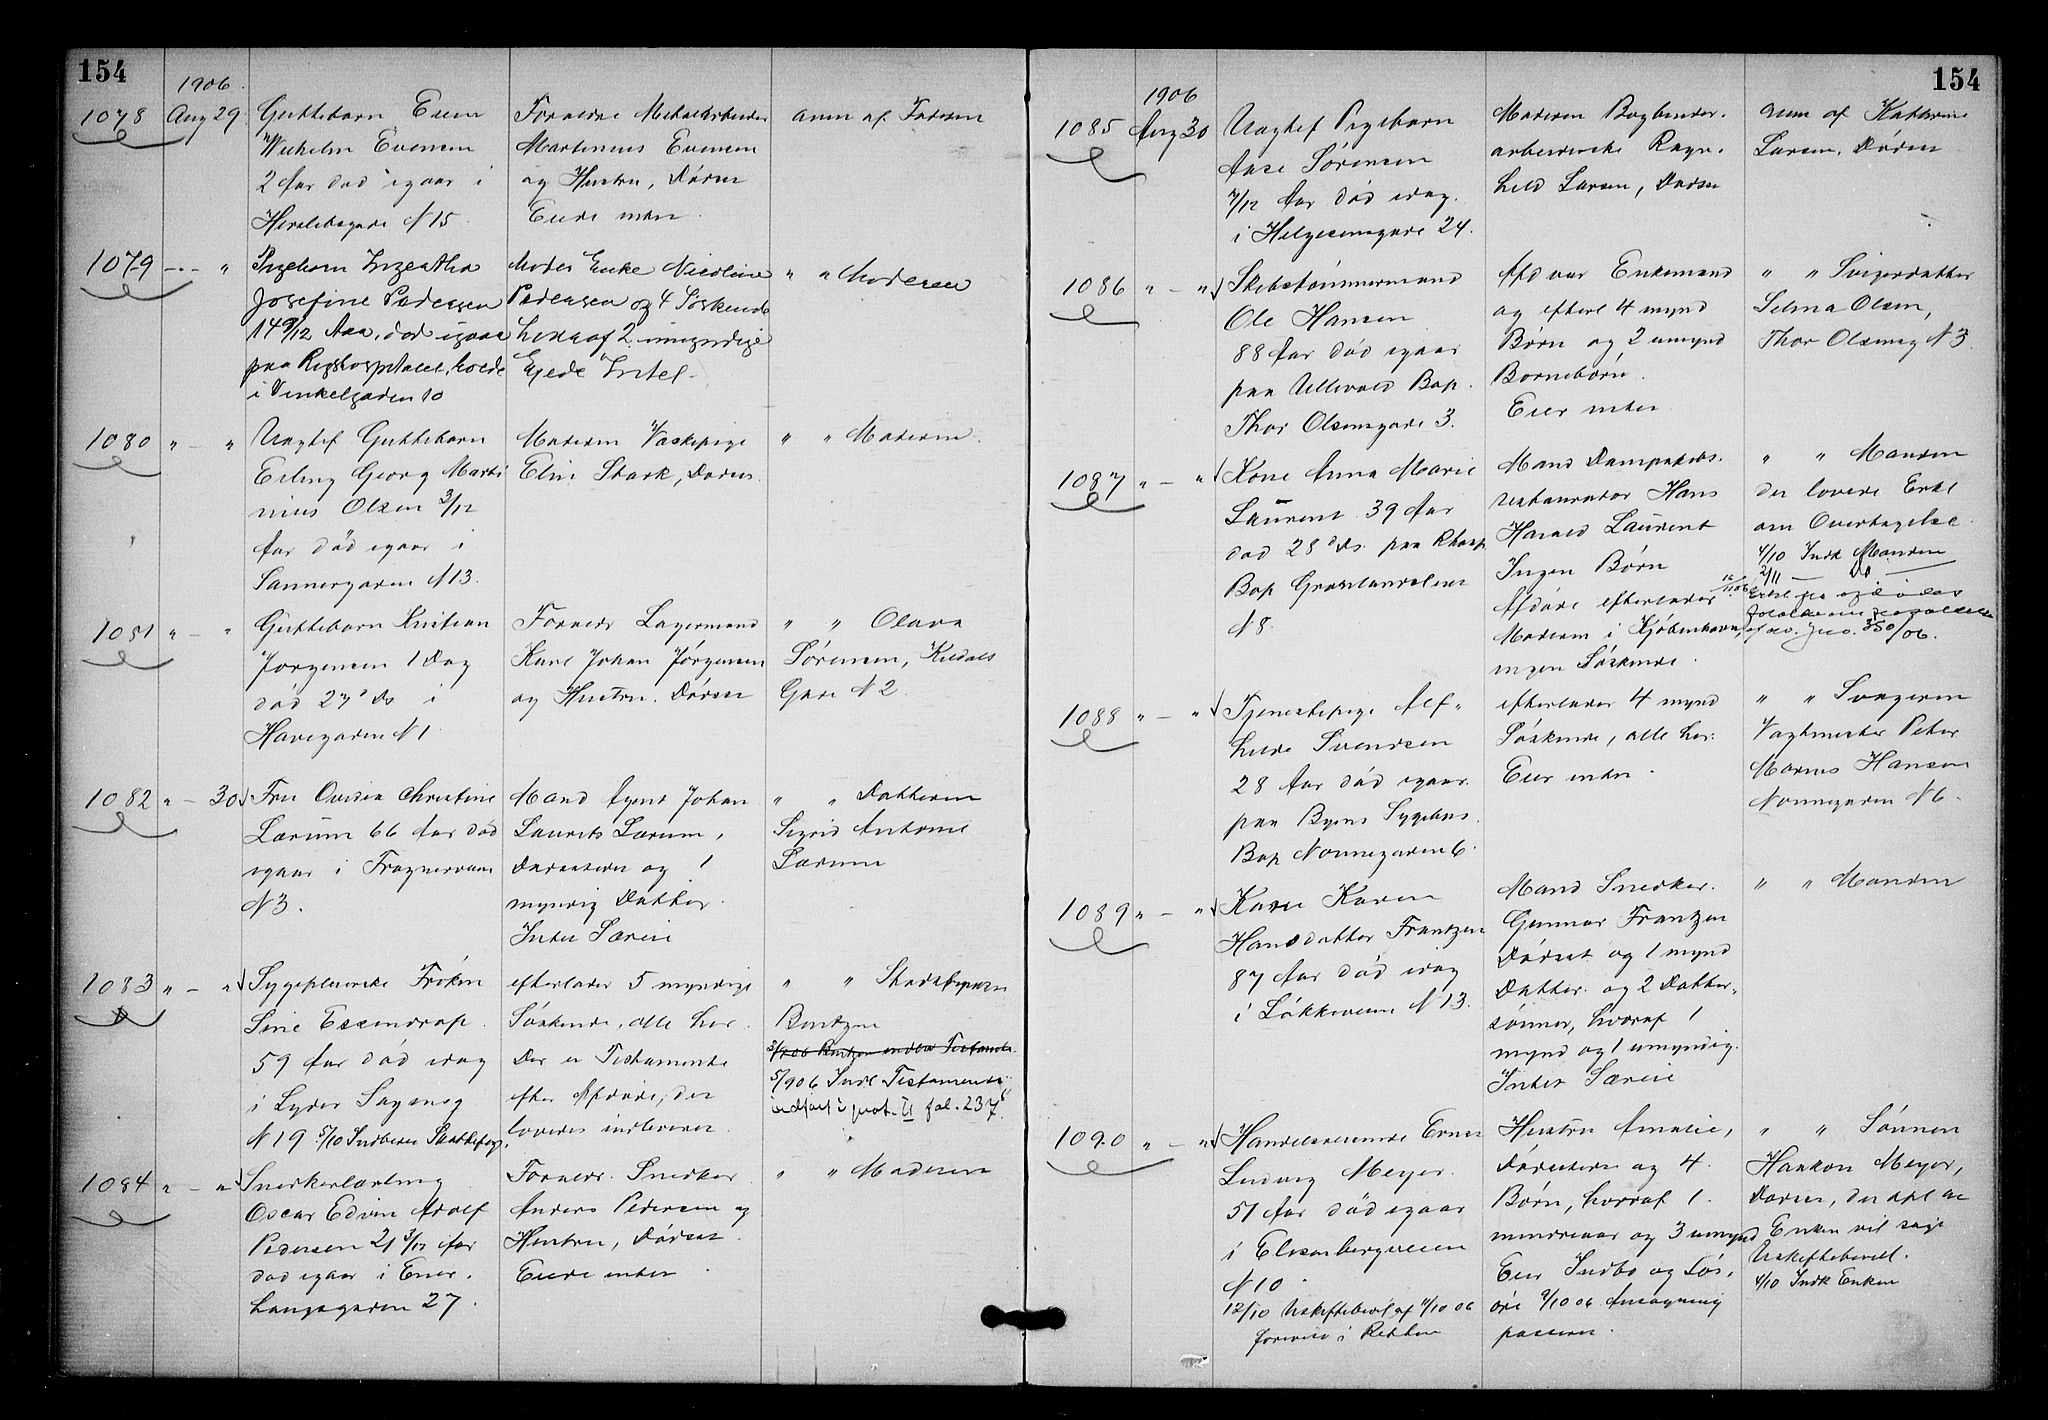 154
1906.
1078 Aug 29 Guttebarn Einar
Wilhelm Evensen
2 Aar død igaar i
Herslebsgade N 15
Forældre Metalarbeider
Martinius Evensen
og Hustru, Døren
Eiede intet.
anm af Faderen
1079 -.- " Pigebarn Ingeatha
Josefine Pedersen
14 9/12 Aar, død igaar
paa Rigshospitalet, boede
i Vinkelgaden 10
Moder Enke Nicoline
Pedersen og 4 Søskende
heraf 2 umyndige
Ejede Intet.
" " Moderen
1080 " - " Uægtef Guttebarn
Erling Georg Marti
nius Olsen 3/12
Aar død igaar i
Sannergaden N 13.
Moderen Vaskepige
Elise Stark, Døren
" " Moderen.
1081 " - " Guttebarn Kristian
Jørgensen 1 Dag
død 27' Ds i
Havegaden N 1
Forældr Lagermand
Karl Johan Jørgensen
og Hustru. Døren
" " Olava
Sørensen, Kieldals
Gade N 2.
1082 " - 30 Fru Ovidia Christine
Lærum 66 Aar død
igaar i Frognerveien
N 3.
Mand Agent Johan
Laurits Lærum,
Dødsatten og 1
myndig Datter.
Intet Særeie
" " Datteren
Sigrid Antonie
Lærum
1083 " - " Sygepleierske Frøken
Sine Essendrop.
59 Aar død idag
i Lyder Sagensg
N 19 5/10 Indberet Skattefog.
efterlader 5 myndige
Søskende, alle her.
Der er Testamente
efter Afdøde, der
loveres indleveret
" " Stadsfysikus
Bentzen
5/906 Indl Testamente
indført i prot. II fol. 237
1084 " - " Snedkerlærling
Oscar Edvin Adolf
Pedersen 21 3/12 Aar
død igaar i Ener.
haugsgaden 27.
Forældr. Snedker
Anders Pedersen og
Hustru, Dødsat.
Eiede intet
" " Moderen
154
1906
1085 Aug 30 Uægtef Pigebarn
Aase Sørensen
7/12 Aar død idag.
i Helgesensgade 24.
Moderen Bogbinder.
arbeiderske Ragn.
hild Larsen, Døren
anm af Kathrine
Larsen, Døren
1086 " - " Skibstømmermand
Ole Hansen
88 Aar død igaar
paa Ullevold Bop.
Thor Olsensgade 3.
Afd var Enkemand
og efterl 4 mynd
Børn og 2 umynd
Børnebørn.
Eier intet
" " Svigerdatter
Selma Olsen,
Thor Olsensg N 3
1087 " - " Kone Anna Marie
Laurent 39 Aar
død 28' Ds. paa Rhosp
Bop Grønlandsleret
N 8.
Mand Dampskibs.
restauratør Hans
Harald Laurent
Ingen Børn
Afdøde efterlader
Moderen i Kjøbenhavn,
ingen Søskende.
" " Manden
der lovede Erkl
om Overtagelse.
4/10 Indk Manden
2/11 — Do —
350/06.
1088 " - " Tjenestepige Alf-
hilde Svendsen
28 Aar død igaar.
paa Byens Sygehus.
Bop Nonnegaden 6.
efterlader 4 mynd
Søskende, alle her.
Eier intet.
" " Svogeren
Vagtmester Peter
Marius Hansen
Nonnegaden N 6.
1089 " - " Kone Karen
Hansdatter Frantzen
87 Aar død idag
i Løkkeveien N 13.
Mand Snedker.
Gunnar Frantzen
Dødsat og 1 mynd
Datter. og 2 Datter-
sønner, hvoraf 1
mynd og 1 umyndig.
Intet Særeie
" " Manden
1090 " - " Handelsreisende Ernst
Ludvig Meyer.
51 Aar død igaar
i Elisenbergveien
N 10.
12/10 Uskiftebevil af 11/10 06
forevist i Retten
Hustru Amalie,
Dødsatten og 4.
Børn, hvoraf 1.
mindreaar og 3 umynd
Eier Indbo og Løs,
øre 9/10 06 Ansøgning
passeret.
" " Sønnen
Haakon Meyer,
Døren, der opl at
Enken vil søge
Uskiftebevil.
4/10 Indk Enken